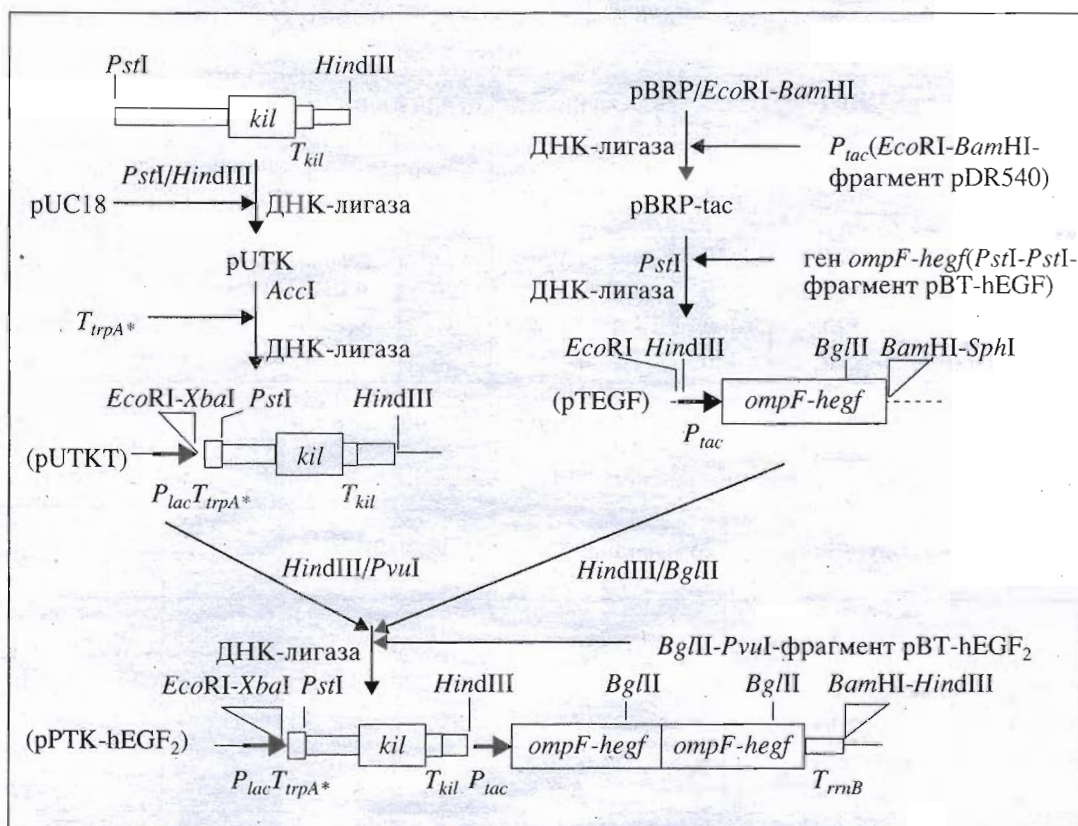 PstI HindIII
kil
T_kil
PstI/HindIII
pUC18 ДНК-лигаза
pUTK
AccI
T_trpA*
ДНК-лигаза
EcoRI-XbaI PstI HindIII
(pUTKT) kil
P_lac T_trpA* T_kil
pBRP/EcoRI-BamHI
ДНК-лигаза
P_tac(EcoRI-BamHI-
фрагмент pDR540)
pBRP-tac
PstI
ДНК-лигаза
ген ompF-hegf(PstI-PstI-
фрагмент pBT-hEGF)
EcoRI HindIII BglII BamHI-SphI
(pTEGF) ompF-hegf
P_tac
HindIII/PvuI HindIII/BglII
ДНК-лигаза BglII-PvuI-фрагмент pBT-hEGF₂
EcoRI-XbaI PstI HindIII BglII BglII BamHI-HindIII
(pPTK-hEGF₂) kil ompF-hegf ompF-hegf
P_lac T_trpA* T_kil P_tac T_rrnB